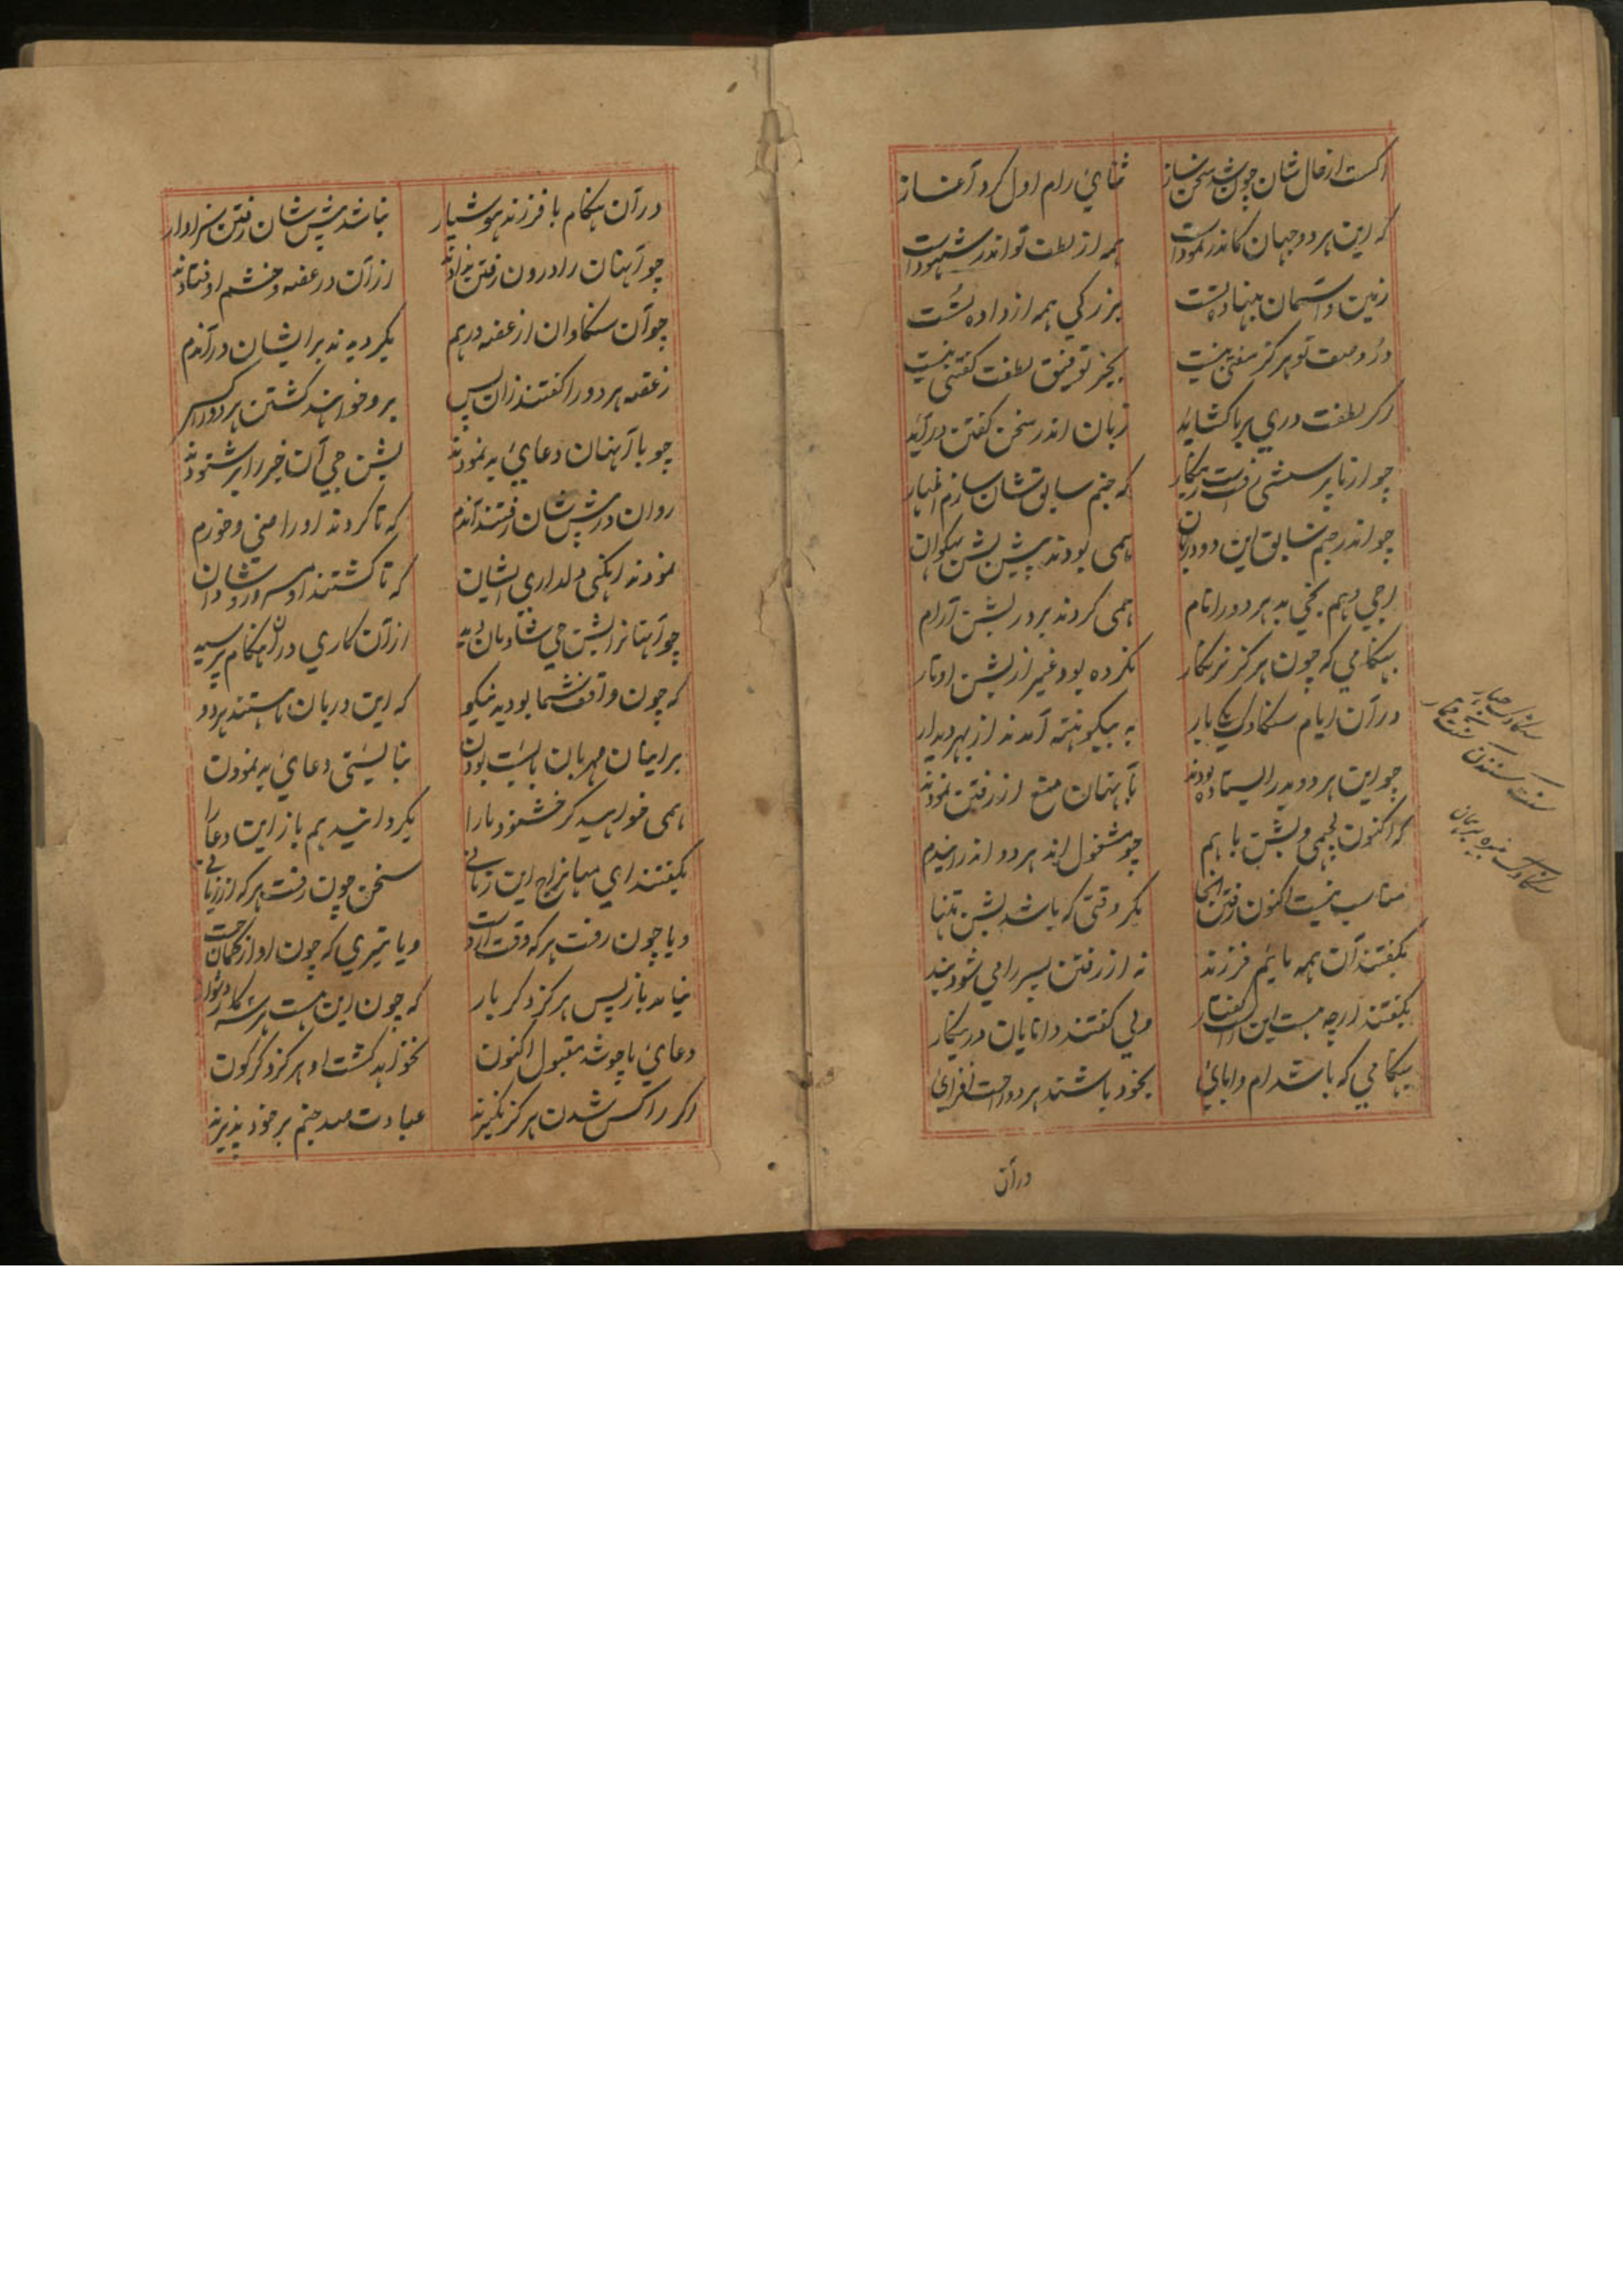 اکست از حال شان چون شد سخن ساز ثنای رام اول کرد آغاز
که این هر دو جهان کاندر نمودات همه از لطف تو اندر شهودات
زمین و آسمان بنهاده تست بزرکی همه از داده تست
در وصفت تو هرکز سفتنی نیست بجز توفیق لطفت کفتنی نیست
اکر لطفت دری بر ما کشاید زبان اندر سخن کفتن درآید
چو از ما پرسشی رفت که جنم سابق شان سازم اظهار
چو اندر جنم سابق این دو دربان همی بودند پیش بشن
جی و هم بجی بد هر دو را نام همی کردند بر در بشن آرام
بهنکامی که چون هرکز نرنکار نکرده بود غیر از بشن اوتار
در آن ایام سنکادک یک بار به بیکونته آمدند از بهر دیدار
چو این هر دو بدر ایستاده بودند بآنهان منع از رفتن نمودند
که اکنون لچمی و بشن با هم چو مشغول اند هر دو اندر ایندم
مناسب نیست اکنون رفتن آنجا مکر وقتی که باشد بشن تنها
بکفتند آن همه مائیم فرزند نه از رفتن پسر را می شود بند
بکفتند ارچه هست این ولی کفتند دانایان درینکار
بهنکامی که باشد مام و بابای بخود باشند هر دو راحت افزای
درآن
سنکادک
سنت سنندن سنت کمار
سنکادک
در آن هنکام با فرزند هوشیار نباشد پیش شان رفتن سزاوار
چو آنهان را درون رفتن ندادند از آن در غصه و خشم اوفتادند
چو آن سنکادان از غصه درهم بکردید ند برایشان در آندم
ز غصه هر دو را کفتند زان پس برو خواهند کشتن هر دو راکس
چو با آنهان دعای بد نمودند بشن جی آن خبر را برشنودند
روان در پیش شان رفتند آندم که تا کردند او راضی و خورم
نمودند دلداری ایشان که تا کشتند او
چو آنها را بشن جی شادمان دید از آن کاری در آن هنکام پرسید
که چون واقف شما بودید نیکو که این دربان ما هستند هر دو
بر اینان مهربان بائیست بودن نبائیستی دعای بد نمودن
همی خواهید کر خشنود ما را بکردانید هم باز این دعا را
بکفتند ای مهاراج این زمانی سخن چون رفت هر که از زبانی
و یا چون رفت هر که وقت از دست و یا تیری که چون او از کمان جست
نیاید باز پس هرکز دکر بار که چون این هست هر سه کار دشوار
دعای ما چو شد مقبول اکنون نخواهد کشت او هرکز دکرکون
اکر راکس شدن هرکز عبادت صد جنم بر خود پذیرند